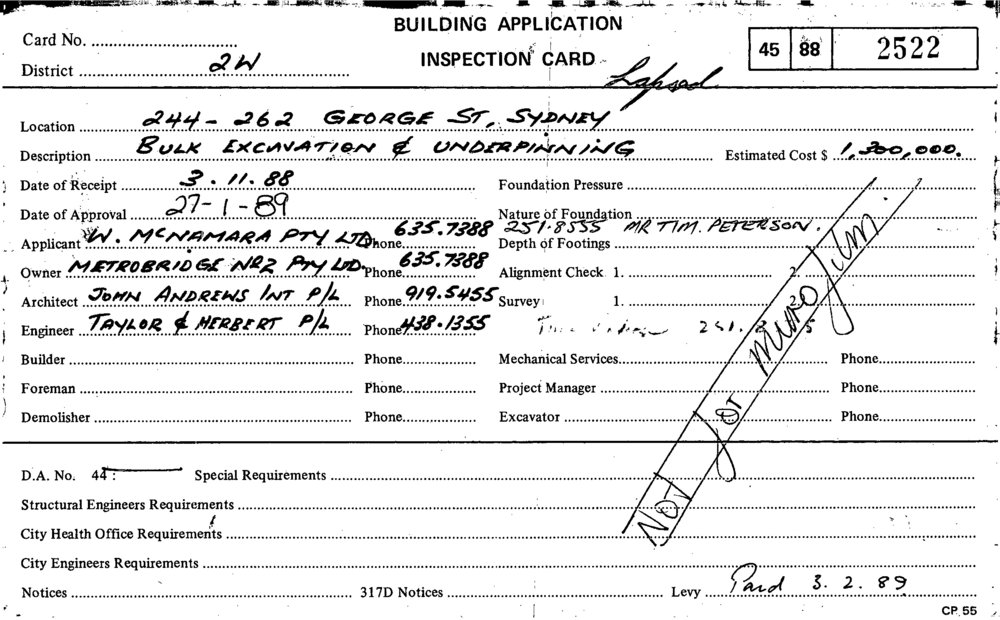 BUILDING APPLICATION
INSPECTION CARD
Card No.
District 2W
45 88 2522
Lapsed
Location 244 - 262 GEORGE ST, SYDNEY
Description BULK EXCAVATION & UNDERPINNING Estimated Cost $ 1,300,000.
Date of Receipt 3. 11. 88 Foundation Pressure
Date of Approval 27-1-89 Nature of Foundation
251.8555 MR TIM. PETERSON.
Applicant W. MCNAMARA PTY LTD Phone 635.7388 Depth of Footings
Owner METROBRIDGE NR2 PTY LTD. Phone 635.7388 Alignment Check 1. 2.
Architect JOHN ANDREWS INT P/L Phone 919.5455 Survey 1. 2.
Engineer TAYLOR & HERBERT P/L Phone 438.1355
Builder Phone Mechanical Services Phone
Foreman Phone Project Manager Phone
Demolisher Phone Excavator Phone
Not for microfilm.
D.A. No. 44: Special Requirements
Structural Engineers Requirements
City Health Office Requirements
City Engineers Requirements
Notices 317D Notices Levy Paid 3. 2. 89
CP. 55